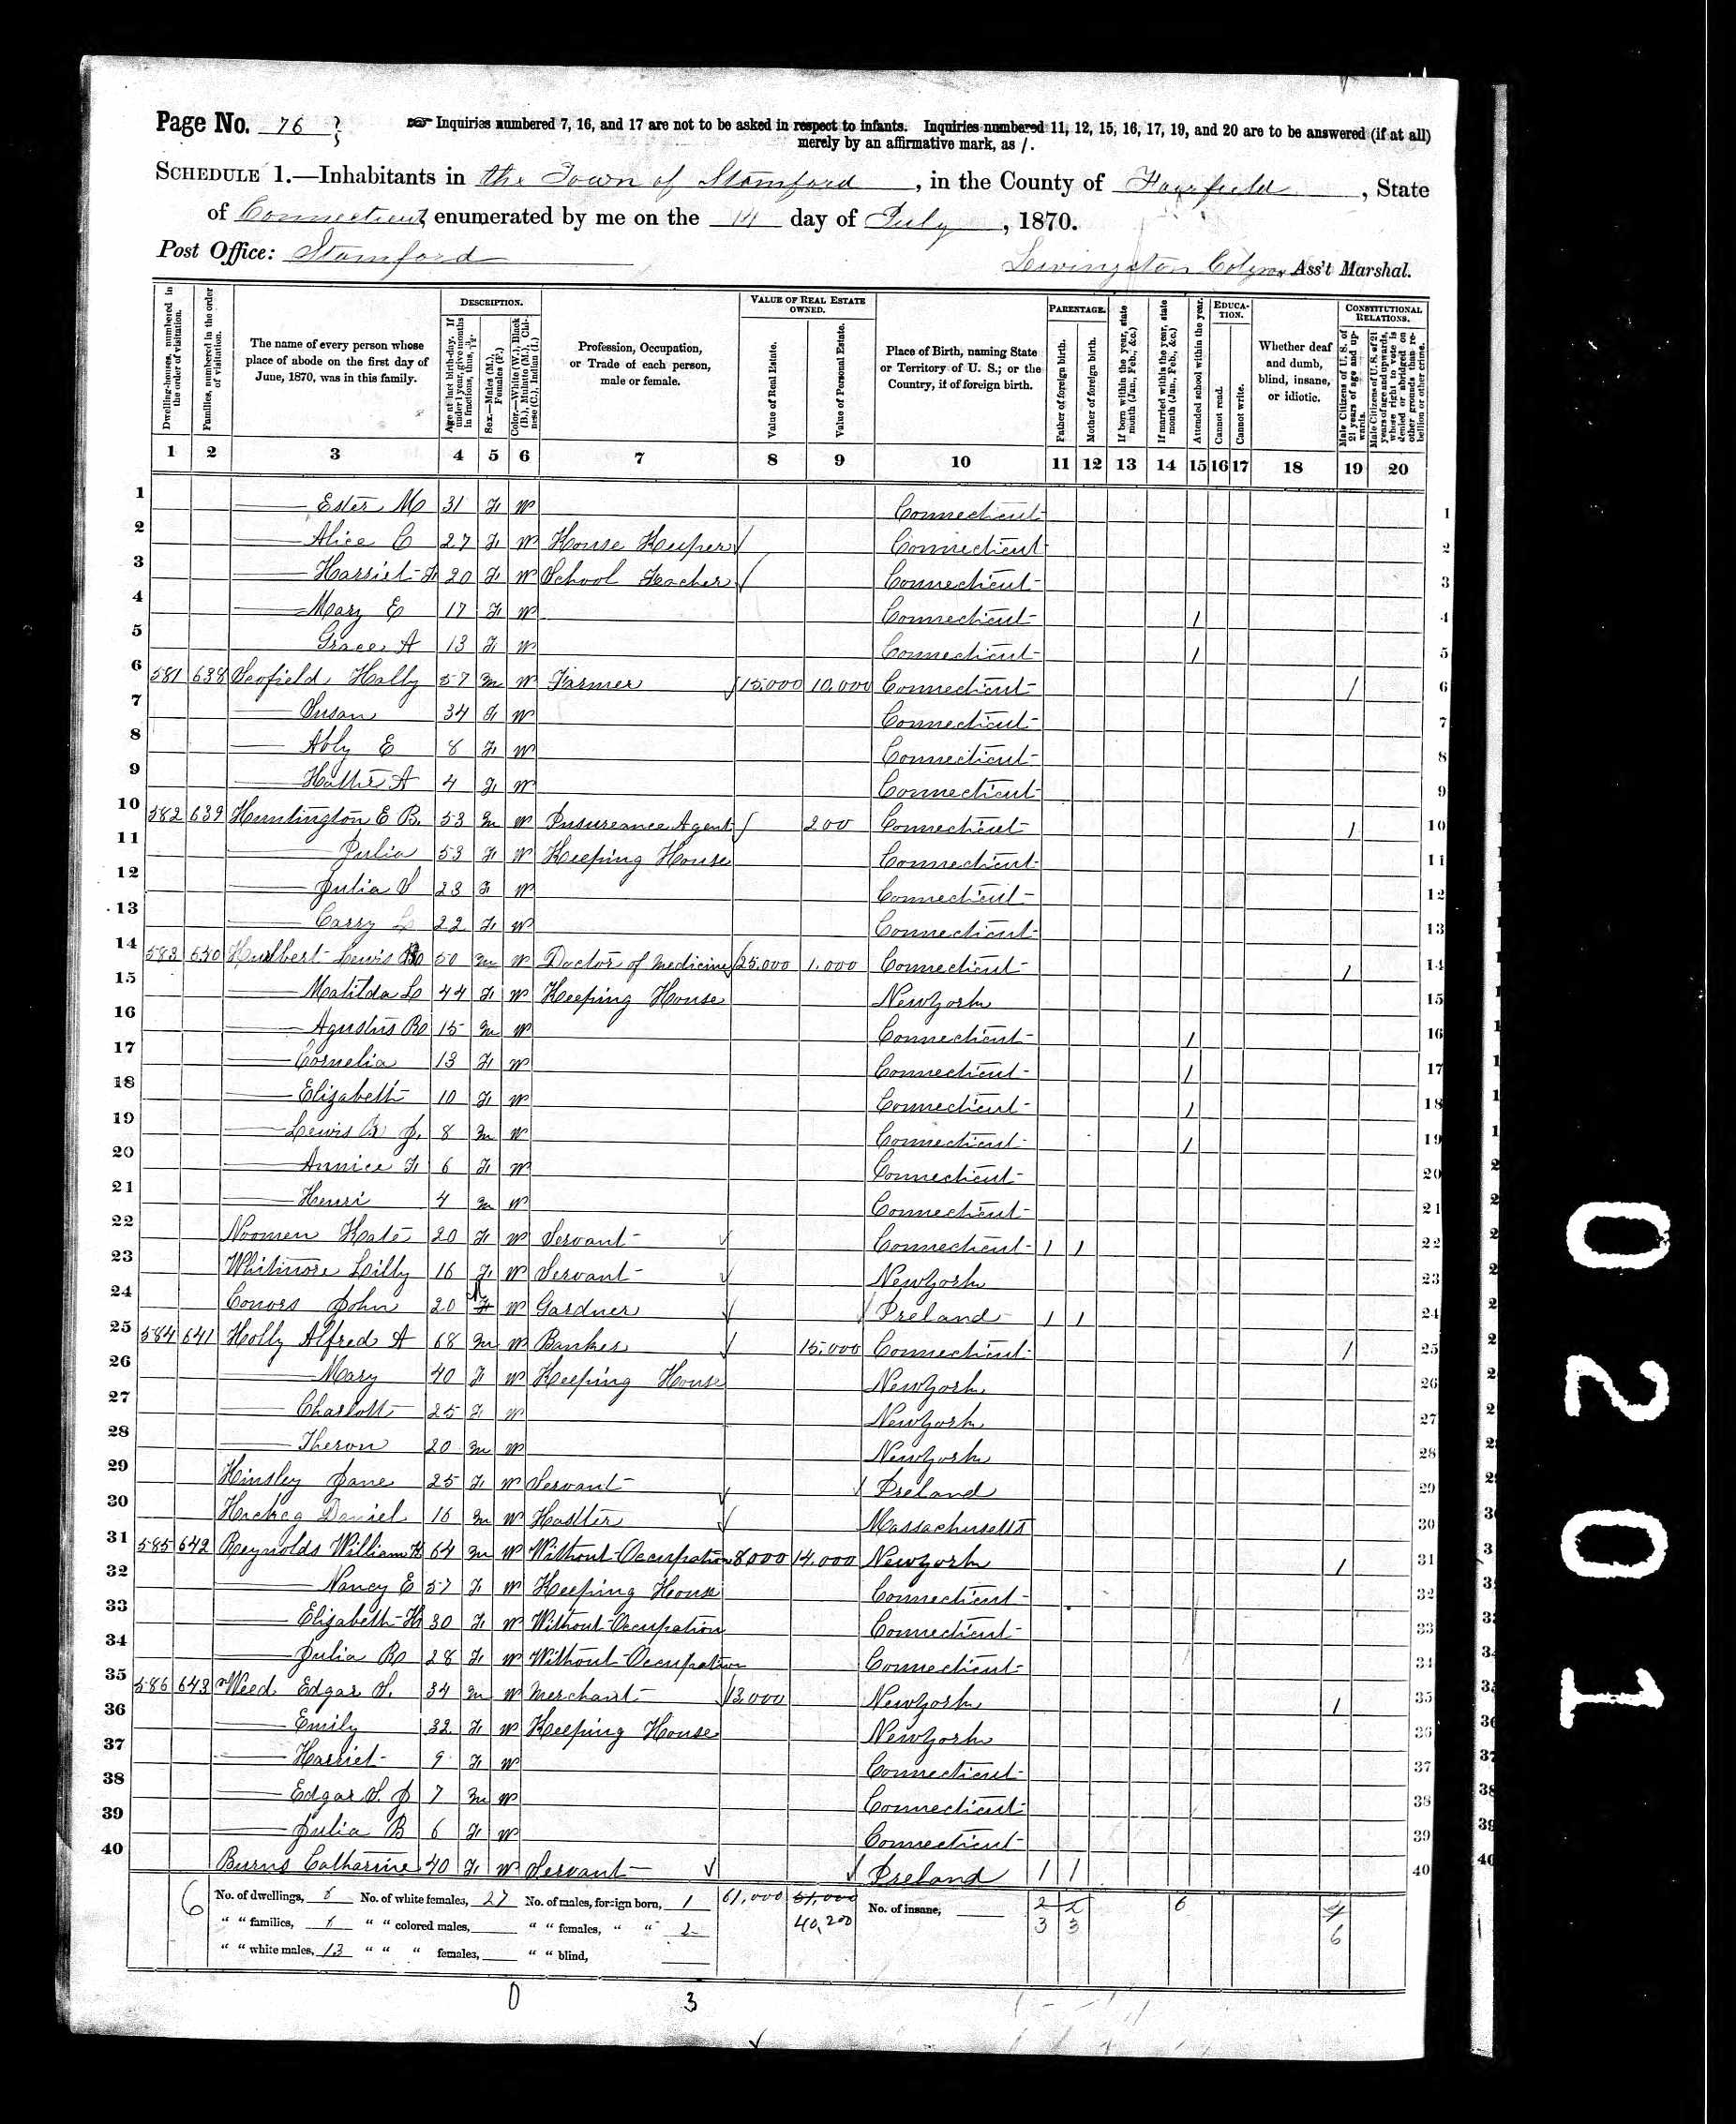 Page No. 76
Inquiries numbered 7, 16, and 17 are not to be asked in respect to infants. Inquiries numbered 11, 12, 15, 16, 17, 19, and 20 are to be answered (if at all)
merely by an affirmative mark, as /.
SCHEDULE 1.—Inhabitants in the Town of Stamford, in the County of Fairfield, State
of Connecticut, enumerated by me on the 14 day of July, 1870.
Post Office: Stamford
Livingston Ass't Marshal.
Dwelling-houses, numbered in the order of visitation.
Families, numbered in the order of visitation.
The name of every person whose place of abode on the first day of June, 1870, was in this family.
DESCRIPTION.
Age at last birth-day. If under 1 year, give months in fractions, thus, 3/12.
Sex.—Males (M.), Females (F.)
Color.—White (W.), Black (B.), Mulatto (M.), Chinese (C.), Indian (I.)
Profession, Occupation, or Trade of each person, male or female.
VALUE OF REAL ESTATE OWNED.
Value of Real Estate.
Value of Personal Estate.
Place of Birth, naming State or Territory of U. S.; or the Country, if of foreign birth.
PARENTAGE.
Father of foreign birth.
Mother of foreign birth.
If born within the year, state month (Jan., Feb., &c.)
If married within the year, state month (Jan., Feb., &c.)
Attended school within the year.
EDUCATION.
Cannot read.
Cannot write.
Whether deaf and dumb, blind, insane, or idiotic.
CONSTITUTIONAL RELATIONS.
Male Citizens of U. S. of 21 years of age and upwards.
Male Citizens of U. S. of 21 years of age and upwards, whose right to vote is denied or abridged on other grounds than rebellion or other crime.
1 2 3 4 5 6 7 8 9 10 11 12 13 14 15 16 17 18 19 20
1 —— Ester M 31 F W Connecticut 1
2 —— Alice C 27 F W House Keeper Connecticut 2
3 —— Harriet F 20 F W School Teacher Connecticut 3
4 —— Mary E 17 F W Connecticut / 4
5 Grace A 13 F W Connecticut / 5
6 581 638 Scofield Holly 57 M W Farmer 15,000 10,000 Connecticut / 6
7 —— Susan 34 F W Connecticut 7
8 —— Aby E 8 F W Connecticut 8
9 —— Hattie A 4 F W Connecticut 9
10 582 639 Huntington E B. 53 M W Insureance Agent 200 Connecticut / 10
11 —— Julia 53 F W Keeping House Connecticut 11
12 —— Julia S 23 F W Connecticut 12
13 —— Carry L 22 F W Connecticut 13
14 583 650 Hurlbert Lewis 50 M W Doctor of Medicine 25,000 1,000 Connecticut / 14
15 —— Matilda L 44 F W Keeping House New York 15
16 —— Agustus B 15 M W Connecticut / 16
17 —— Cornelia 13 F W Connecticut / 17
18 —— Elizabeth 10 F W Connecticut / 18
19 —— Lewis R J. 8 M W Connecticut / 19
20 —— Annice F 6 F W Connecticut 20
21 —— Henri 4 M W Connecticut 21
22 Noomen Kate 20 F W Servant Connecticut / / 22
23 Whitmore Lilly 16 F W Servant New York 23
24 Conors John 20 M W Gardner Ireland / / 24
25 584 641 Holly Alfred A 68 M W Banker 15,000 Connecticut / 25
26 —— Mary 40 F W Keeping House New York 26
27 —— Charlott 25 F W New York 27
28 —— Theron 20 M W New York 28
29 Hinsley Jane 25 F W Servant Ireland 29
30 Daniel 16 M W Hostler Massachusetts 30
31 585 642 Reynolds William H 64 M W Without Occupation 8,000 14,000 New York / 31
32 —— Nancy E 57 F W Keeping House Connecticut 32
33 —— Elizabeth H 30 F W Without Occupation Connecticut 33
34 —— Julia B 28 F W Without Occupation Connecticut 34
35 586 643 Weed Edgar S. 34 M W Merchant 13,000 New York / 35
36 —— Emily 32 F W Keeping House New York 36
37 —— Harriet 9 F W Connecticut 37
38 —— Edgar S. J 7 M W Connecticut 38
39 —— Julia B 6 F W Connecticut 39
40 Burns Catharine 40 F W Servant Ireland / / 40
6 No. of dwellings, 6 No. of white females, 27 No. of males, foreign born, 1 61,000 51,000 No. of insane, 2 2 6 4
" " families, 6 " " colored males, " " females, " " 2 40,200 3 3 6
" " white males, 13 " " " females, " " blind,
0 3
0201